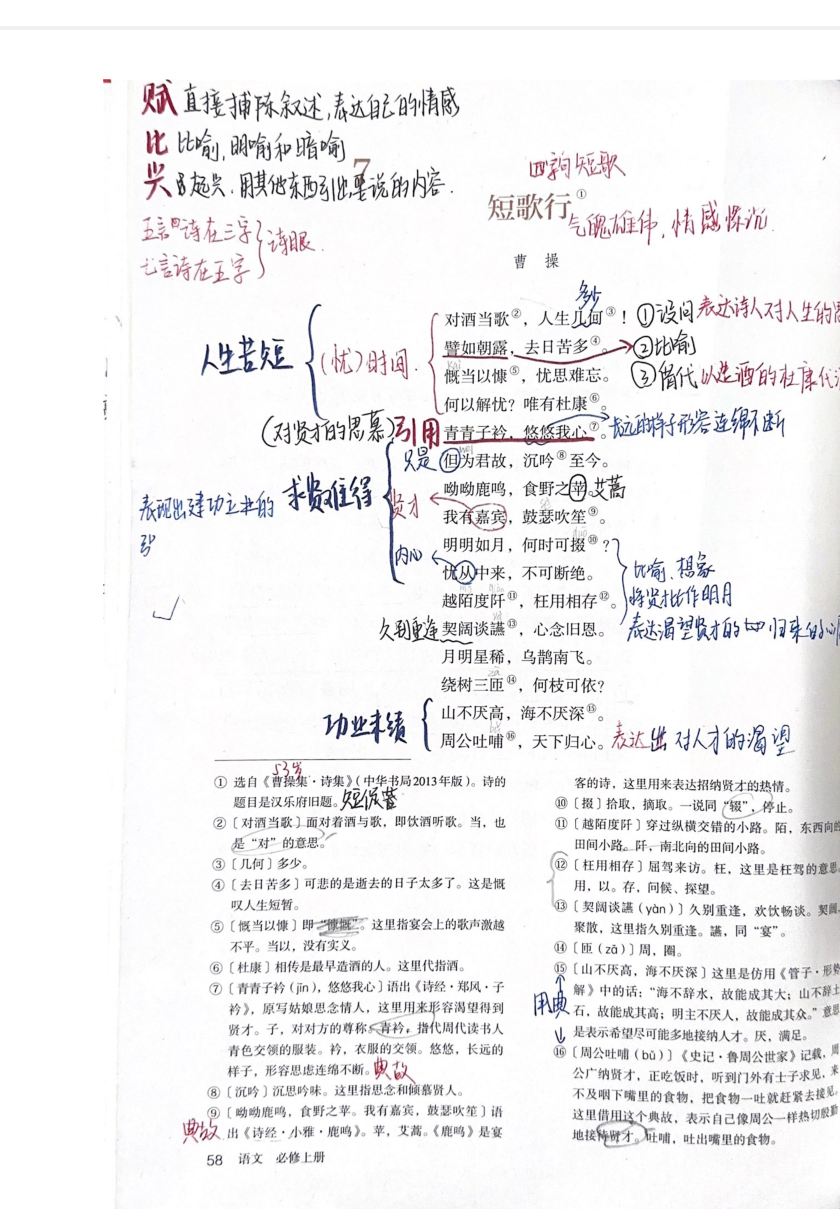 赋 直接铺陈叙述,表达自己的情感
比 比喻,明喻和暗喻
兴 起兴.用其他东西引出要说的内容.
7
四言短歌
短歌行①
气魄雄伟,情感深沉
五言诗在三字
七言诗在五字
诗眼.
曹 操
多少
对酒当歌②，人生几何③！
①设问 表达诗人对人生的
譬如朝露，去日苦多④。
②比喻
人生苦短
(忧)时间.
慨当以慷⑤，忧思难忘。
kǎi
③借代 以造酒的杜康代
何以解忧？唯有杜康⑥。
(对贤才的思慕)引用
青青子衿，悠悠我心⑦。
长远的样子形容连绵不断
只是
但为君故，沉吟⑧至今。
呦呦鹿鸣，食野之苹。
艾蒿
表现出建功立业的
求贤难得
贤才
我有嘉宾，鼓瑟吹笙⑨。
明明如月，何时可掇⑩？
内心
忧从中来，不可断绝。
比喻、想象
越陌度阡⑪，枉用相存⑫。
将贤才比作明月
久别重逢
契阔谈䜩⑬，心念旧恩。
表达渴望贤才的 归来的心
月明星稀，乌鹊南飞。
绕树三匝⑭，何枝可依？
功业未绩
山不厌高，海不厌深⑮。
周公吐哺⑯，天下归心。
表达出对人才的渴望
53岁
① 选自《曹操集·诗集》（中华书局2013年版）。诗的
题目是汉乐府旧题。
② 〔对酒当歌〕面对着酒与歌，即饮酒听歌。当，也
是“对”的意思。
③ 〔几何〕多少。
④ 〔去日苦多〕可悲的是逝去的日子太多了。这是慨
叹人生短暂。
⑤ 〔慨当以慷〕即“慷慨”。这里指宴会上的歌声激越
不平。当以，没有实义。
⑥ 〔杜康〕相传是最早造酒的人。这里代指酒。
⑦ 〔青青子衿（jīn），悠悠我心〕语出《诗经·郑风·子
衿》，原写姑娘思念情人，这里用来形容渴望得到
贤才。子，对对方的尊称。青衿，指代周代读书人
青色交领的服装。衿，衣服的交领。悠悠，长远的
样子，形容思虑连绵不断。
典故
⑧ 〔沉吟〕沉思吟味。这里指思念和倾慕贤人。
⑨ 〔呦呦鹿鸣，食野之苹。我有嘉宾，鼓瑟吹笙〕语
典故
出《诗经·小雅·鹿鸣》。苹，艾蒿。《鹿鸣》是宴
客的诗，这里用来表达招纳贤才的热情。
⑩ 〔掇〕拾取，摘取。一说同“辍”，停止。
⑪ 〔越陌度阡〕穿过纵横交错的小路。陌，东西向的
田间小路。阡，南北向的田间小路。
⑫ 〔枉用相存〕屈驾来访。枉，这里是枉驾的意思。
用，以。存，问候、探望。
⑬ 〔契阔谈䜩（yàn）〕久别重逢，欢饮畅谈。契阔，
聚散，这里指久别重逢。䜩，同“宴”。
⑭ 〔匝（zā）〕周，圈。
⑮ 〔山不厌高，海不厌深〕这里是仿用《管子·形势
解》中的话：“海不辞水，故能成其大；山不辞土
用典
石，故能成其高；明主不厌人，故能成其众。”意思
是表示希望尽可能多地接纳人才。厌，满足。
⑯ 〔周公吐哺（bǔ）〕《史记·鲁周公世家》记载，周
公广纳贤才，正吃饭时，听到门外有士子求见，来
不及咽下嘴里的食物，把食物一吐就赶紧去接见。
这里借用这个典故，表示自己像周公一样热切殷勤
地接待贤才。吐哺，吐出嘴里的食物。
58 语文 必修上册